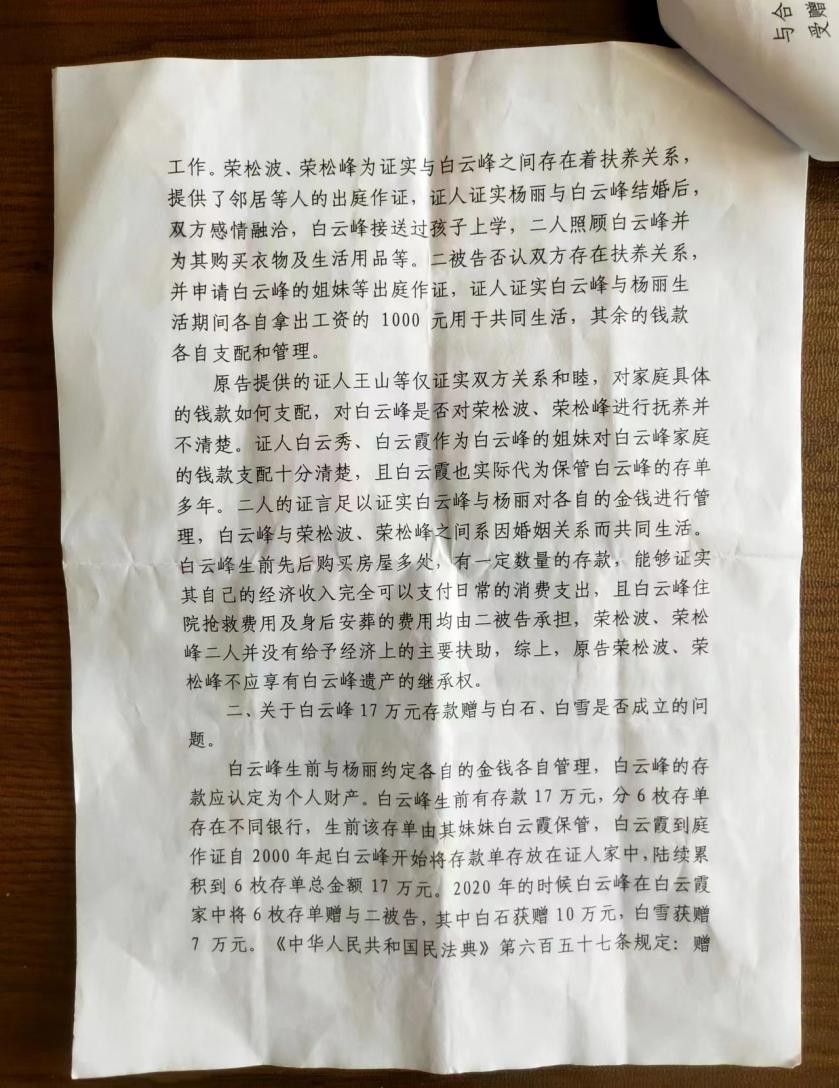 与合
受赠
工作。荣松波、荣松峰为证实与白云峰之间存在着扶养关系，
提供了邻居等人的出庭作证，证人证实杨丽与白云峰结婚后，
双方感情融洽，白云峰接送过孩子上学，二人照顾白云峰并
为其购买衣物及生活用品等。二被告否认双方存在扶养关系，
并申请白云峰的姐妹等出庭作证，证人证实白云峰与杨丽生
活期间各自拿出工资的 1000 元用于共同生活，其余的钱款
各自支配和管理。
原告提供的证人王山等仅证实双方关系和睦，对家庭具体
的钱款如何支配，对白云峰是否对荣松波、荣松峰进行抚养并
不清楚。证人白云秀、白云霞作为白云峰的姐妹对白云峰家庭
的钱款支配十分清楚，且白云霞也实际代为保管白云峰的存单
多年。二人的证言足以证实白云峰与杨丽对各自的金钱进行管
理，白云峰与荣松波、荣松峰之间系因婚姻关系而共同生活。
白云峰生前先后购买房屋多处，有一定数量的存款，能够证实
其自己的经济收入完全可以支付日常的消费支出，且白云峰住
院抢救费用及身后安葬的费用均由二被告承担，荣松波、荣松
峰二人并没有给予经济上的主要扶助，综上，原告荣松波、荣
松峰不应享有白云峰遗产的继承权。
二、关于白云峰 17 万元存款赠与白石、白雪是否成立的问
题。
白云峰生前与杨丽约定各自的金钱各自管理，白云峰的存
款应认定为个人财产。白云峰生前有存款 17 万元，分 6 枚存单
存在不同银行，生前该存单由其妹妹白云霞保管，白云霞到庭
作证自 2000 年起白云峰开始将存款单存放在证人家中，陆续累
积到 6 枚存单总金额 17 万元。2020 年的时候白云峰在白云霞
家中将 6 枚存单赠与二被告，其中白石获赠 10 万元，白雪获赠
7 万元。《中华人民共和国民法典》第六百五十七条规定：赠